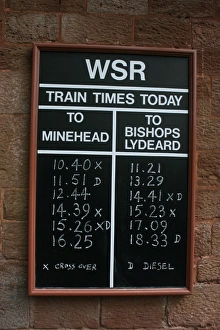 WSR
TRAIN TIMES TODAY
TO
MINEHEAD
TO
BISHOPS
LYDEARD
10.40 X
11.51 D
12.44
14.39 X
15.26 XD
16.25
11.21
13.29
14.41 XD
15.23 X
17.09
18.33 D
X CROSS OVER
D DIESEL